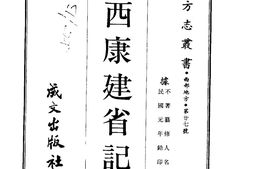 方志叢書・西部地方・第廿七號
據
不著纂修人名
民國元年鉛印
西康建省記
成文出版社